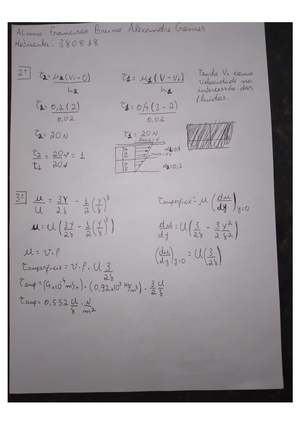 Aluno: Francisco Bruno Alexandre Gomes
Matrícula: 380818
2ª)
τ₂ = μ₂(Vi-0)/h₂
τ₁ = μ₁(V-Vi)/h₁
Tendo Vi como velocidade na intersessão dos fluidos.
τ₂ = 0,2(2)/0,02
τ₁ = 0,4(3-2)/0,02
τ₂ = 20 N
τ₁ = 20 N
τ₂/τ₁ = 20N/20N = 1
3ª)
u/U = 3Y/2δ - 1/2(Y/δ)³
τsuperfície = μ(du/dy)y=0
u = U(3Y/2δ - 1/2(Y/δ)³)
du/dy = U(3/2δ - 3Y²/2δ³)
μ = υ·ρ
(du/dy)y=0 = U(3/2δ)
τsuperfície = υ·ρ·U 3/2δ
τsup = 0,552 U/δ · N/m²